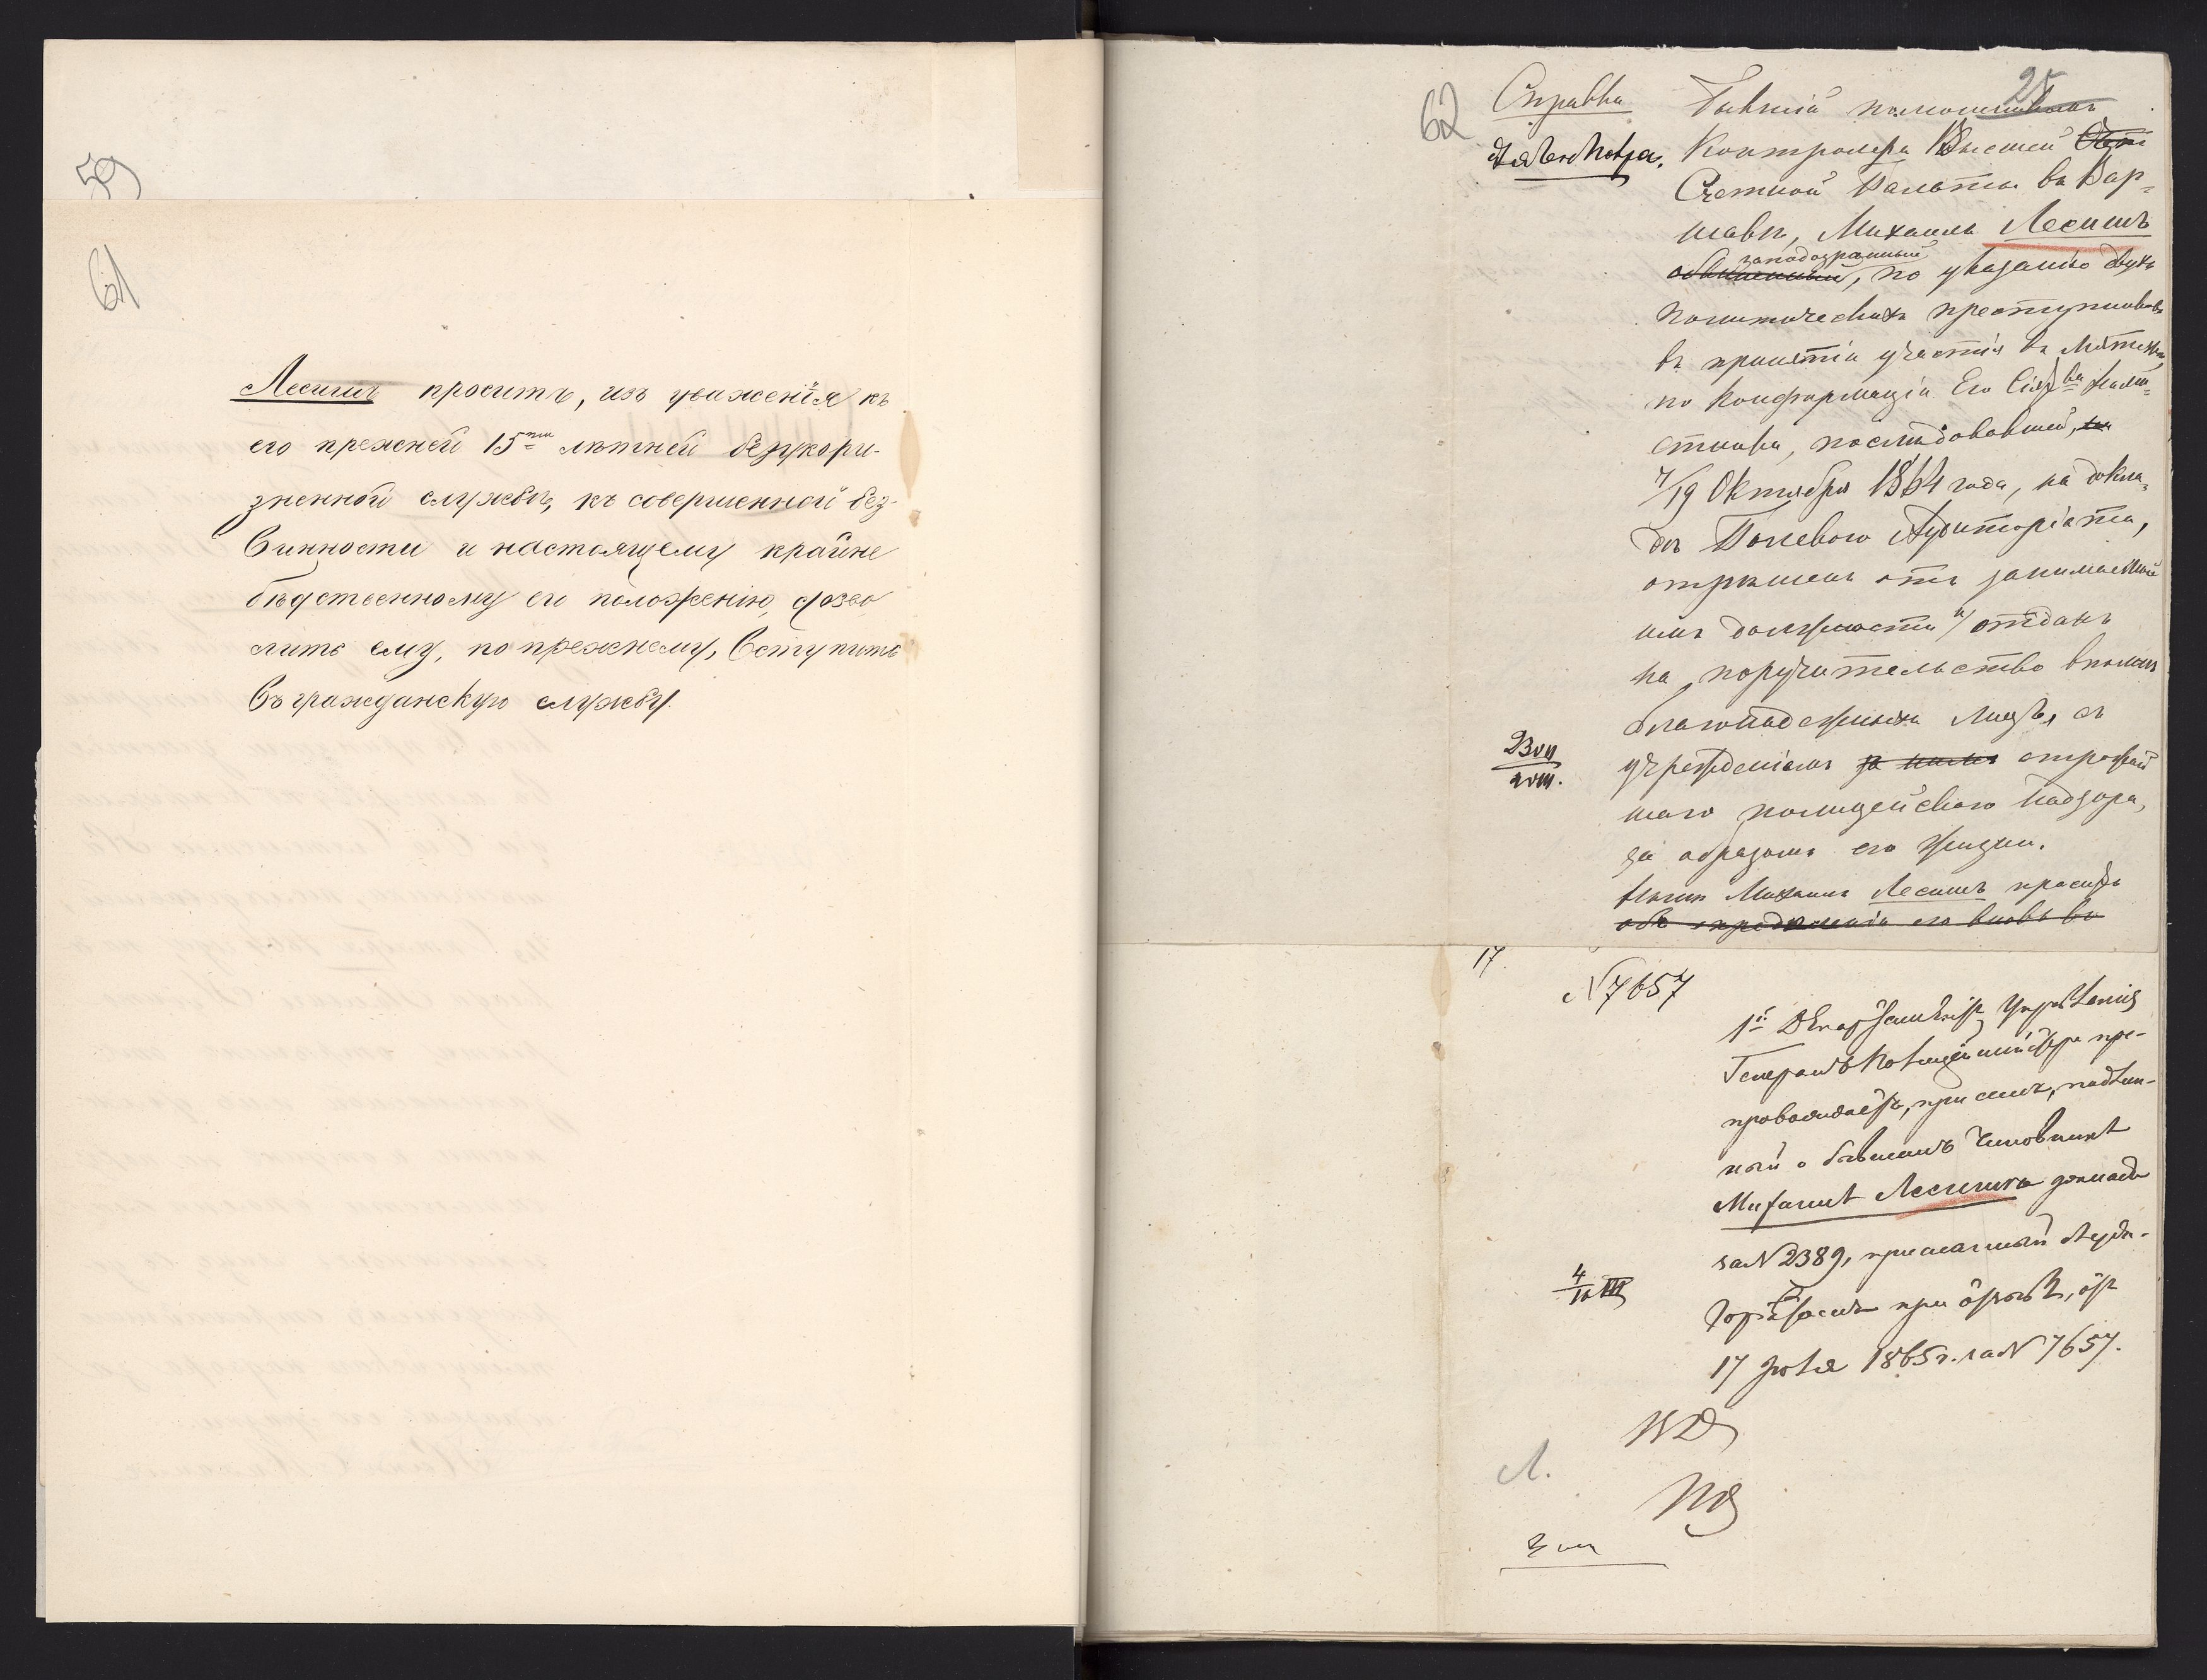 59
61
Лесишъ проситъ, изъ уваженія къ
его прежней 15ти лѣтней безукори-
зненной службы, къ совершенной без-
винности и настоящему крайне
бѣдственному его положенію, дозво
лить ему, по прежнему, вступить
въ гражданскую службу.
62
25
Справка
Бывшій помощникъ
Контролера Высшей
Счетной Палаты въ Вар-
шавѣ, Михаилъ Лесишъ
заподозрѣнный
обвиненный, по указанію двухъ
политическихъ преступниковъ
въ принятіи участія въ мятежѣ,
по конфирмаціи Его Сіят-ва Намѣ-
стника, послѣдовавшей, на
7/19 Октября 1864 года, на докла-
дѣ Полеваго Аудиторіата,
отрѣшенъ отъ занимаемой
имъ должности и отданъ
на поручительство вполнѣ
благонадежныхъ лицъ, съ
учрежденіемъ за нимъ строжай
шаго полицейскаго надзора,
за образомъ его жизни.
Нынѣ Михаилъ Лесишъ проситъ
объ опредѣленіи его вновь въ
17.
N 7657
1й Департаментъ Управленія
Генералъ Полицеймейстера пре-
провождаетъ, при семъ, подлин-
ный о бывшемъ чиновникѣ
Михаилѣ Лесишѣ докладъ
за N 2389, присланный Ауди-
торіатомъ при отзывѣ, отъ
17 Іюля 1865 г. за N 7657.
Л.